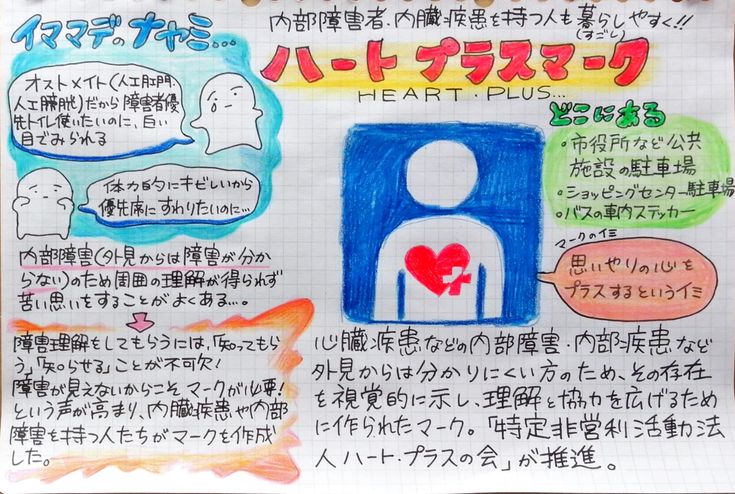 イママデのナヤミ…
オストメイト(人工肛門・
人工膀胱)だから障害者優
先トイレ使いたいのに、白い
目でみられる
体力的にキビしいから
優先席にすわりたいのに…
内部障害(外見からは障害が分か
らない)のため周囲の理解が得られず
苦い思いをすることがよくある…。
障害理解をしてもらうには、「知ってもら
う」「知らせる」ことが不可欠!
障害が見えないからこそマークが必要!
という声が高まり、内臓疾患や内部
障害を持つ人たちがマークを作成
した。
内部障害者・内臓疾患を持つ人も暮らしやすく!!
(すごし)
ハートプラスマーク
HEART・PLUS…
どこにある
・市役所など公共
施設の駐車場
・ショッピングセンター駐車場
・バスの車内ステッカー
マークのイミ
思いやりの心を
プラスするというイミ
心臓疾患などの内部障害・内部疾患など
外見からは分かりにくい方のため、その存在
を視覚的に示し、理解と協力を広げるため
に作られたマーク。「特定非営利活動法
人ハート・プラスの会」が推進。